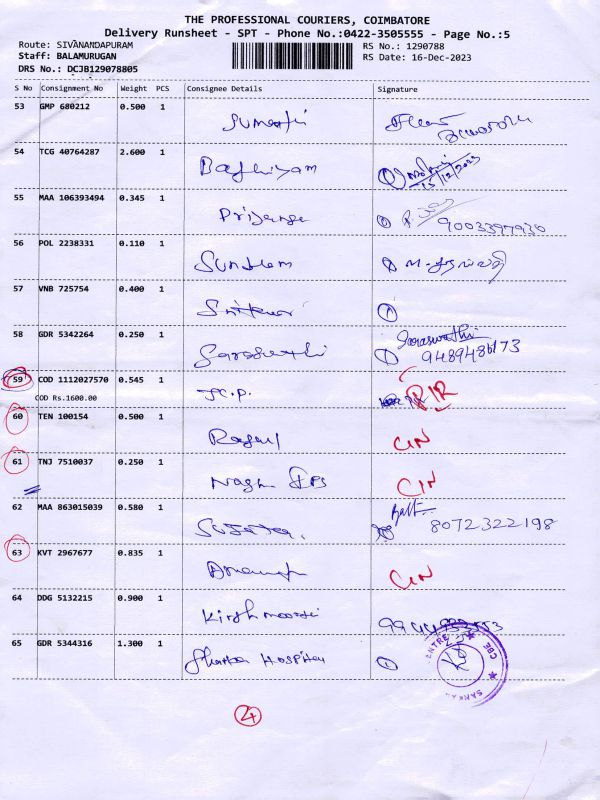 THE PROFESSIONAL COURIERS, COIMBATORE
Delivery Runsheet - SPT - Phone No.:0422-3505555 - Page No.:5
Route: SIVANANDAPURAM RS No.: 1290788
Staff: BALAMURUGAN RS Date: 16-Dec-2023
DRS No.: DCJB129078805
S No Consignment No Weight PCS Consignee Details Signature
53 GMP 680212 0.500 1
Sumathi
54 TCG 40764287 2.600 1
Baghiyam 15/12/2023
55 MAA 106393494 0.345 1
Priyanga 9003397930
56 POL 2238331 0.110 1
Sundaram
57 VNB 725754 0.400 1
58 GDR 5342264 0.250 1 Saraswathi
Saraswathi 9489486173
59 COD 1112027570 0.545 1
COD Rs.1600.00 J.C.P.
60 TEN 100154 0.500 1
C/N
61 TNJ 7510037 0.250 1
C/N
62 MAA 863015039 0.580 1
Sujata. 8072322198
63 KVT 2967677 0.835 1
C/N
64 DDG 5132215 0.900 1
65 GDR 5344316 1.300 1
Hospital
CBE
4